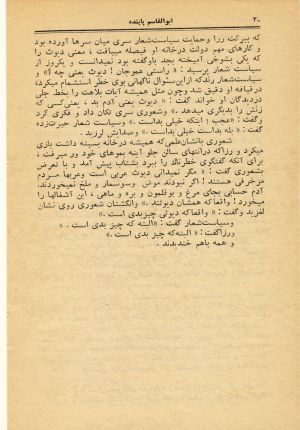 ۲۰ ابوالقاسم پاینده
که ببرکت ررا وحمایت سیاست‌شعار سری میان سرها آورده بود
و کارهای مهم دولت درخانه او فیصله مییافت ، معنی دیوث را
که یکی بشوخی آمیخته بجد باوگفته بود نمیدانست و یکروز از
سیاست شعار پرسید : « راستی عموجان ! دیوث یعنی چه ؟ » و
سیاست‌شعار رند که ازاین‌سئوال ناگهانی بوی خطر استشمام میکرد،
درقیافه او دقیق شد وچون مثل همیشه آیات بلاهت را بخط جلی
دردیدگان او خواند گفت : « دیوث یعنی آدم بد ، یعنی کسی که
زنش را بدیگری میدهد . » وشعوری سری تکان داد و فکری کرد
وگفت : « عجب ! اینکه خیلی بداست . » وسیاست شعار حیرت‌زده
گفت : « بله بداست خیلی بداست . » وصدایش لرزید .
شعوری بانشان‌علمی‌که همیشه درخانه بسینه داشت بازی
میکرد و رزاکه درآنهای سالن جلو آینه بموهای خود ور میرفت ،
برای آنکه گفتگوی خطرناك را ببرد بشتاب پیش آمد و با تعرض
بشعوری گفت : « مگر نمیدانی دیوث عربی است وعربها مـردم
مزخرفی هستند ! اگر نبودند موش وسوسمار و ملخ نمیخوردند،
آدم حسابی بجای مرغ و بوقلمون و بره و ماهی ، این آشغالها را
میخورد ! واقعاکه همشان دیوثند . » وانگشتان شعوری روی نشان
لغزید وگفت : « واقعاکه دیوثی چیزبدی است »
وسیاست‌شعار گفت : « البته که چیز بدی است . »
ورزاگفت : « البته‌که چیز بدی است . »
و همه باهم خندیدند .